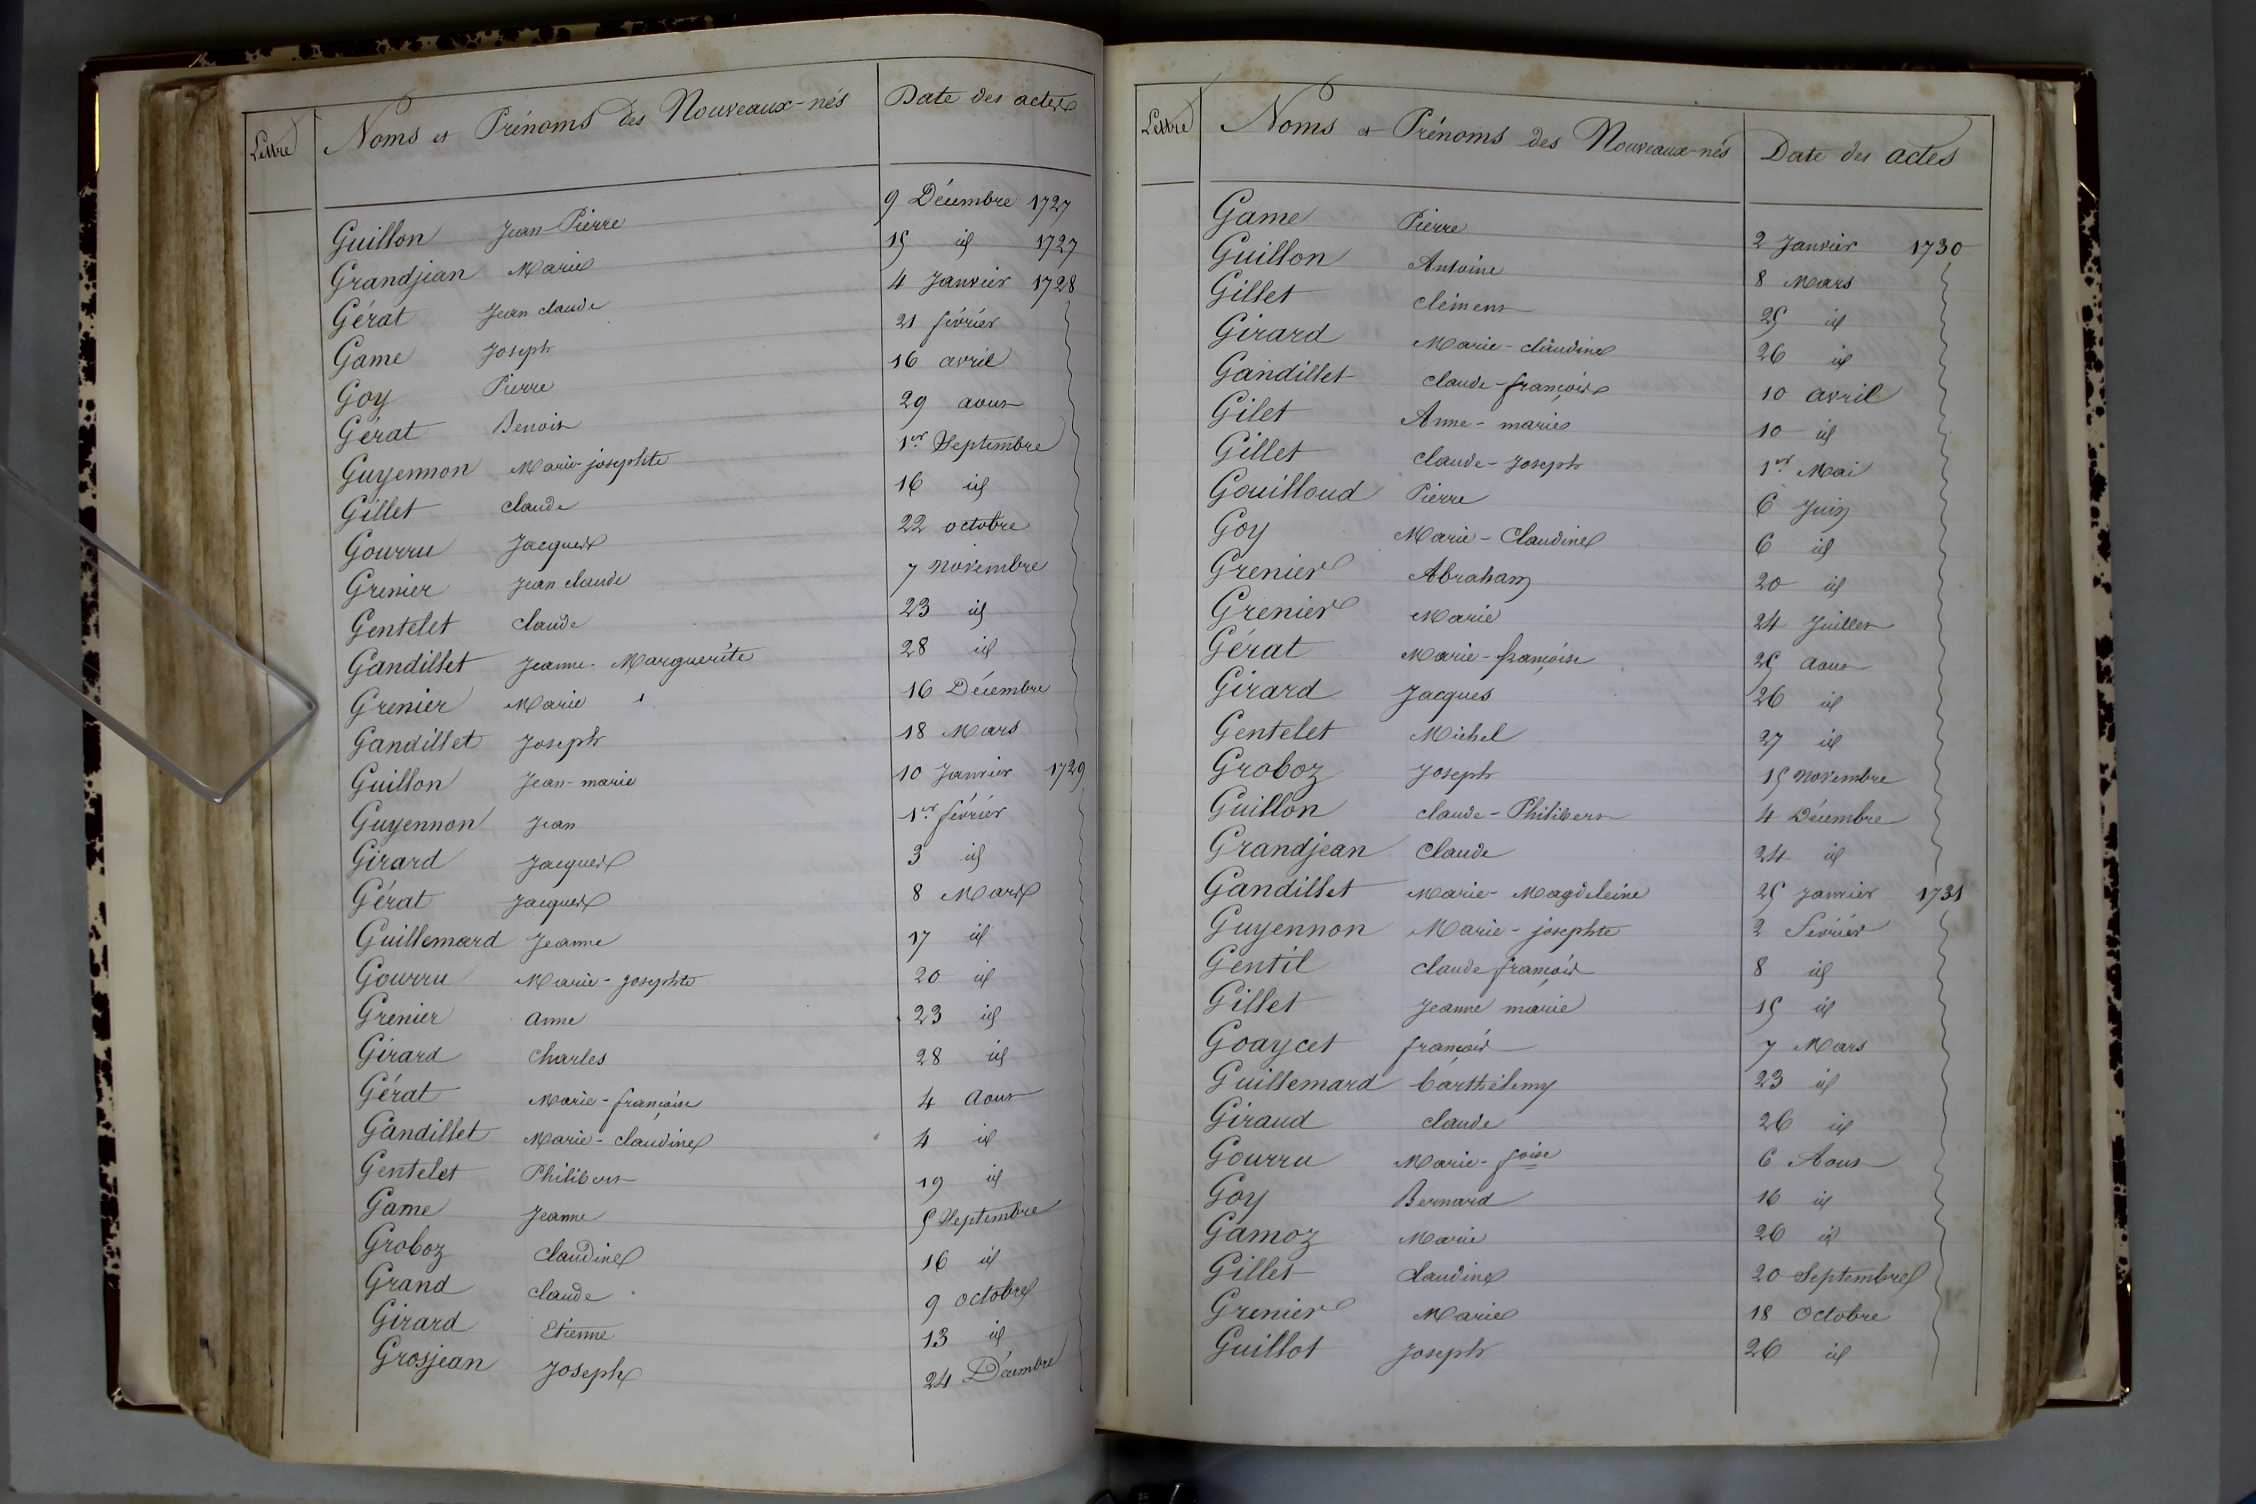 Lettre Noms et Prénoms des Nouveaux-nés Date des actes
Guillon Jean-Pierre 9 Décembre 1727
Grandjean Marie 15 id 1727
Gérat Jean claude 4 Janvier 1728
Game Joseph 21 février
Goy Pierre 16 avril
Gérat Benoit 29 aout
Guyennon Marie-josephte 1er Septembre
Gillet Claude 16 id
Gourru Jacques 22 octobre
Grenier Jean claude 7 novembre
Gentelet Claude 23 id
Gandillet Jeanne-Marguerite 28 id
Grenier Marie 16 Décembre
Gandillet Joseph 18 Mars
Guillon Jean-marie 10 Janvier 1729
Guyennon Jean 1er février
Girard Jacques 3 id
Gérat Jacques 8 Mars
Guillemard Jeanne 17 id
Gourru Marie-Josephte 20 id
Grenier anne 23 id
Girard Charles 28 id
Gérat Marie-françoise 4 Aout
Gandillet Marie-claudine 4 id
Gentelet Philibert 19 id
Game Jeanne 5 Septembre
Groboz Claudine 16 id
Grand Claude 9 octobre
Girard Etienne 13 id
Grosjean Joseph 24 Décembre
Lettre Noms et Prénoms des Nouveaux-nés Date des actes
Game Pierre 2 Janvier 1730
Guillon Antoine 8 Mars
Gillet Clément 25 id
Girard Marie-claudine 26 id
Gandillet Claude-françois 10 avril
Gilet Anne-marie 10 id
Gillet Claude-Joseph 1er Mai
Gouilloud Pierre 6 Juin
Goy Marie-Claudine 6 id
Grenier Abraham 20 id
Grenier Marie 24 Juillet
Gérat Marie-françoise 25 aout
Girard Jacques 26 id
Gentelet Michel 27 id
Groboz Joseph 15 novembre
Guillon Claude-Philibert 4 Décembre
Grandjean Claude 24 id
Gandillet Marie-Magdeleine 25 Janvier 1731
Guyennon Marie-josephte 2 Février
Gentil Claude françois 8 id
Gillet Jeanne marie 15 id
Goaycet françois 7 Mars
Guillemard barthélemy 23 id
Giraud Claude 26 id
Gourru Marie-foise 6 Aout
Goy Bernard 16 id
Gamoz Marie 26 id
Gillet Claudine 20 Septembre
Grenier Marie 18 Octobre
Guillot Joseph 26 id